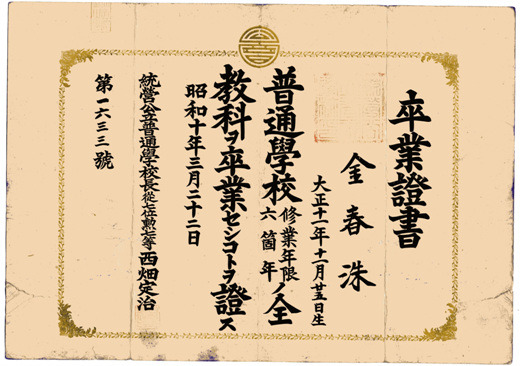 卒業證書
金春洙
大正十一年十一月廿五日生
普通學校修業年限六箇年ノ全
教科ヲ卒業セシコトヲ證ス
昭和十年三月二十二日
統營公立普通學校長從七位勲七等西畑定治
第一六三三號